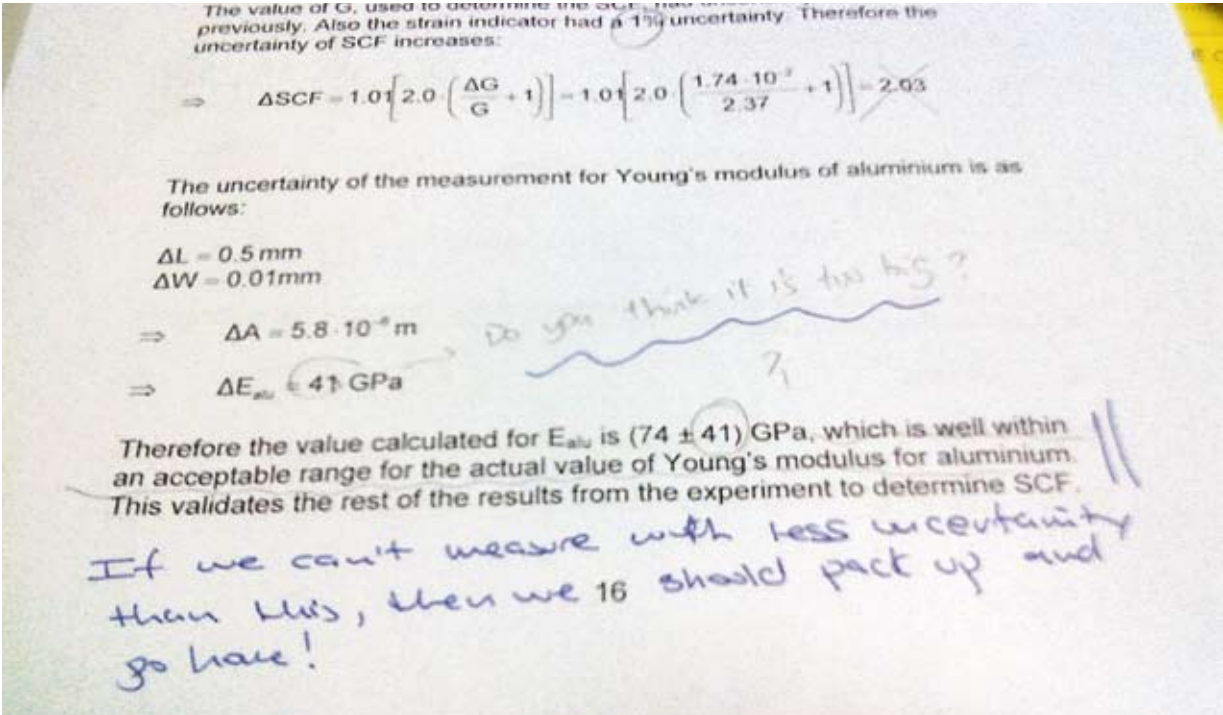 The value of G, used to determine the SCF, had
previously. Also the strain indicator had a 1% uncertainty. Therefore the
uncertainty of SCF increases:
⇒ ΔSCF = 1.01[2.0 · (ΔG/G + 1)] = 1.01[2.0 · (1.74 · 10 / 2.37 + 1)] = 2.03
The uncertainty of the measurement for Young's modulus of aluminium is as
follows:
ΔL = 0.5 mm
ΔW = 0.01mm
Do you think it is too big?
⇒ ΔA = 5.8 · 10 m
?
⇒ ΔE_alu = 41 GPa
Therefore the value calculated for E_alu is (74 ± 41) GPa, which is well within
an acceptable range for the actual value of Young's modulus for aluminium.
This validates the rest of the results from the experiment to determine SCF.
If we can't measure with less uncertainity
than this, then we should pack up and
16
go home!